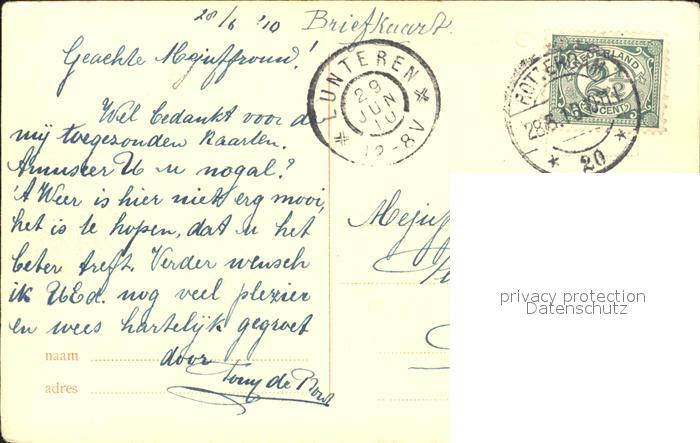 28/6 '10 Briefkaart.
Geachte Mejuffrouw!
Wel bedankt voor de
mij toegezonden kaarten.
Amuseer U u nogal?
't Weer is hier niet erg mooi,
het is te hopen, dat u het
beter treft. Verder wensch
ik UEd. nog veel plezier
en wees hartelijk gegroet
door
Tony de
naam
adres
LUNTEREN
29
JUN
10
12-8V
NEDERLAND
CENT
ROTTERDAM
28.6.10
20
Mejuf
privacy protection
Datenschutz